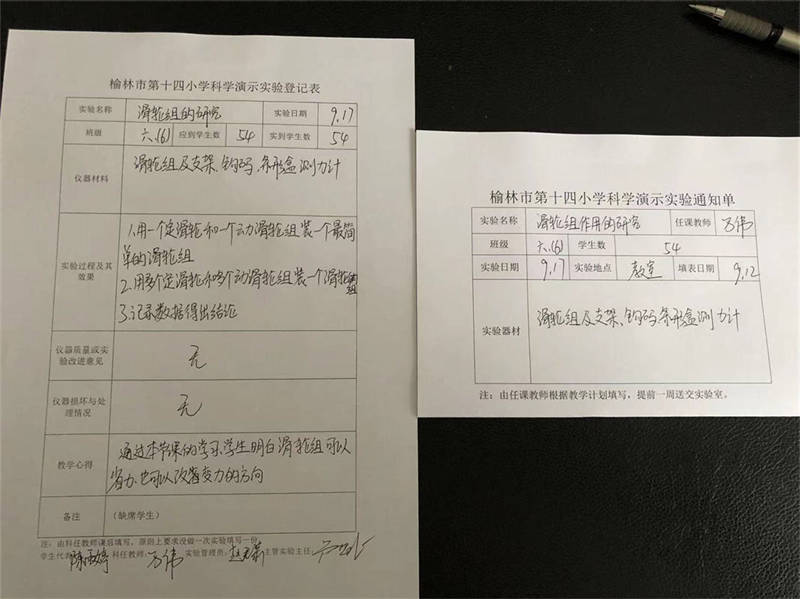 榆林市第十四小学科学演示实验登记表
实验名称 滑轮组的研究 实验日期 9.17
班级 六.(6) 应到学生数 54 实到学生数 54
仪器材料 滑轮组及支架、钩码、条形盒测力计
实验过程及其效果
1.用一个定滑轮和一个动滑轮组装一个最简
单的滑轮组
2.用多个定滑轮和多个动滑轮组装一个滑轮组
3.记录数据得出结论
仪器质量或实验改进意见 无
仪器损坏与处理情况 无
教学心得 通过本节课的学习,学生明白滑轮组可以
省力.也可以改变力的方向
备注 (缺席学生)
注:由科任教师课后填写,原则上要求没做一次实验填写一份
学生代表: 陈 婷 科任教师: 万伟 实验管理员: 主管实验主任:
榆林市第十四小学科学演示实验通知单
实验名称 滑轮组作用的研究 任课教师 万伟
班级 六.(6) 学生数 54
实验日期 9.17 实验地点 教室 填表日期 9.12
实验器材 滑轮组及支架、钩码、条形盒测力计
注:由任课教师根据教学计划填写,提前一周送交实验室。